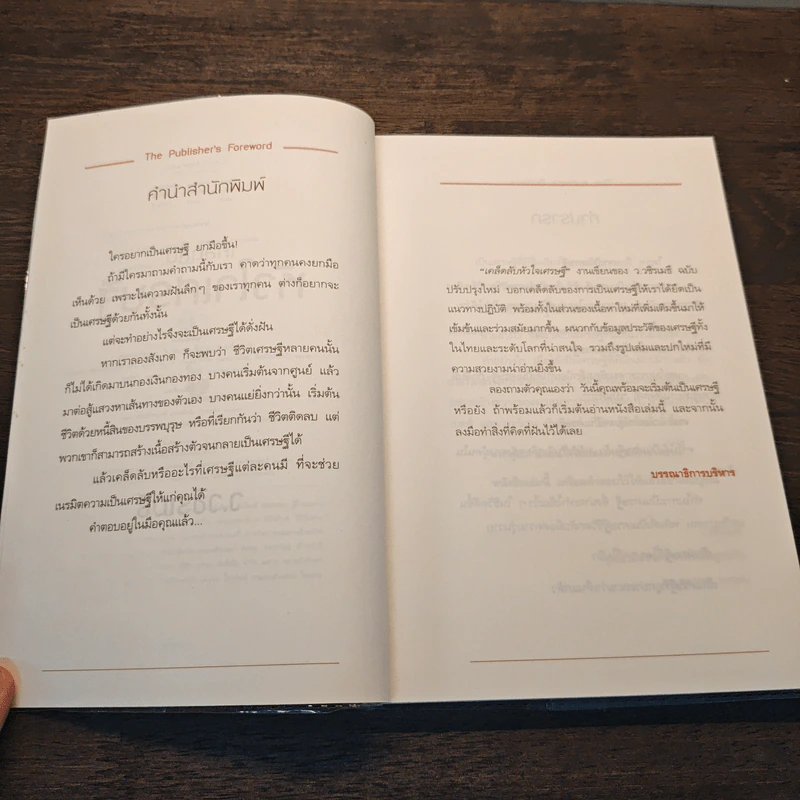 The Publisher's Foreword
คำนำสำนักพิมพ์
ใครอยากเป็นเศรษฐี ยกมือขึ้น!
ถ้ามีใครมาถามคำถามนี้กับเรา คาดว่าทุกคนคงยกมือ
เห็นด้วย เพราะในความฝันลึกๆ ของเราทุกคน ต่างก็อยากจะ
เป็นเศรษฐีด้วยกันทั้งนั้น
แต่จะทำอย่างไรจึงจะเป็นเศรษฐีได้ดั่งฝัน
หากเราลองสังเกต ก็จะพบว่า ชีวิตเศรษฐีหลายคนนั้น
ก็ไม่ได้เกิดมาบนกองเงินกองทอง บางคนเริ่มต้นจากศูนย์ แล้ว
มาต่อสู้แสวงหาเส้นทางของตัวเอง บางคนแย่ยิ่งกว่านั้น เริ่มต้น
ชีวิตด้วยหนี้สินของบรรพบุรุษ หรือที่เรียกกันว่า ชีวิตติดลบ แต่
พวกเขาก็สามารถสร้างเนื้อสร้างตัวจนกลายเป็นเศรษฐีได้
แล้วเคล็ดลับหรืออะไรที่เศรษฐีแต่ละคนมี ที่จะช่วย
เนรมิตความเป็นเศรษฐีให้แก่คุณได้
คำตอบอยู่ในมือคุณแล้ว...
"เคล็ดลับหัวใจเศรษฐี" งานเขียนของ ว.วชิรเมธี ฉบับ
ปรับปรุงใหม่ บอกเคล็ดลับของการเป็นเศรษฐีให้เราได้ยึดเป็น
แนวทางปฏิบัติ พร้อมทั้งในส่วนของเนื้อหาใหม่ที่เพิ่มเติมขึ้นมาให้
เข้มข้นและร่วมสมัยมากขึ้น ผนวกกับข้อมูลประวัติของเศรษฐีทั้ง
ในไทยและระดับโลกที่น่าสนใจ รวมถึงรูปเล่มและปกใหม่ที่มี
ความสวยงามน่าอ่านยิ่งขึ้น
ลองถามตัวคุณเองว่า วันนี้คุณพร้อมจะเริ่มต้นเป็นเศรษฐี
หรือยัง ถ้าพร้อมแล้วก็เริ่มต้นอ่านหนังสือเล่มนี้ และจากนั้น
ลงมือทำสิ่งที่คิดที่ฝันไว้ได้เลย
บรรณาธิการบริหาร